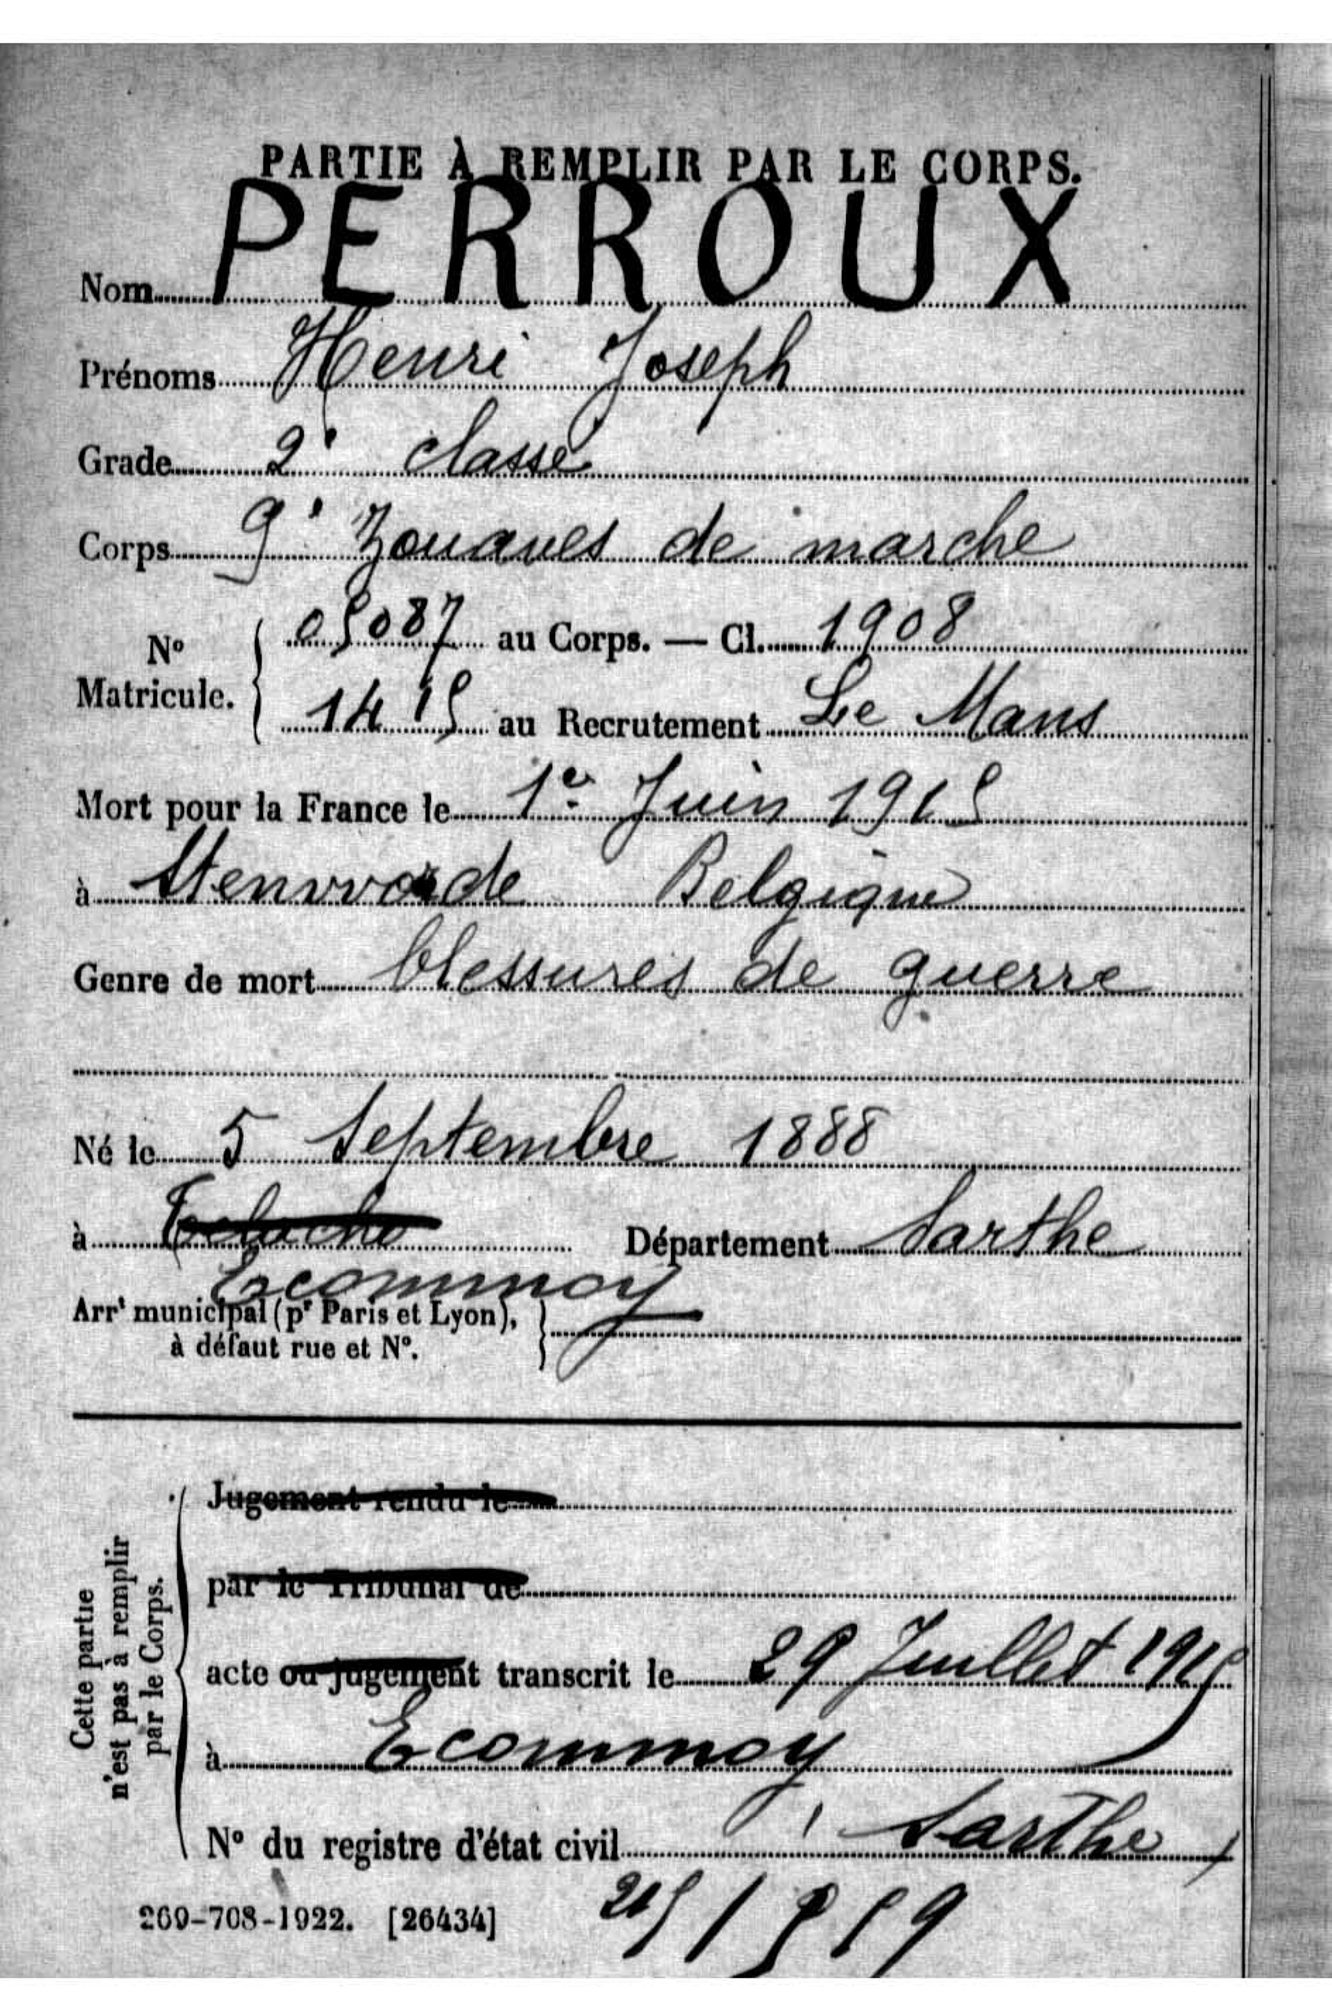 PARTIE À REMPLIR PAR LE CORPS.
Nom PERROUX
Prénoms Henri Joseph
Grade 2e classe
Corps 9e Zouaves de marche
No Matricule. { 05087 au Corps. — Cl. 1908
1415 au Recrutement Le Mans
Mort pour la France le 1er Juin 1915
à Stenvorde Belgique
Genre de mort blessures de guerre
Né le 5 Septembre 1888
à Teloché Département Sarthe
Ecommoy
Arrt municipal (pr Paris et Lyon),
à défaut rue et No.
Cette partie n'est pas à remplir par le Corps.
Jugement rendu le
par le Tribunal de
acte ou jugement transcrit le 29 Juillet 1915
à Ecommoy
No du registre d'état civil Sarthe
269-708-1922. [26434]